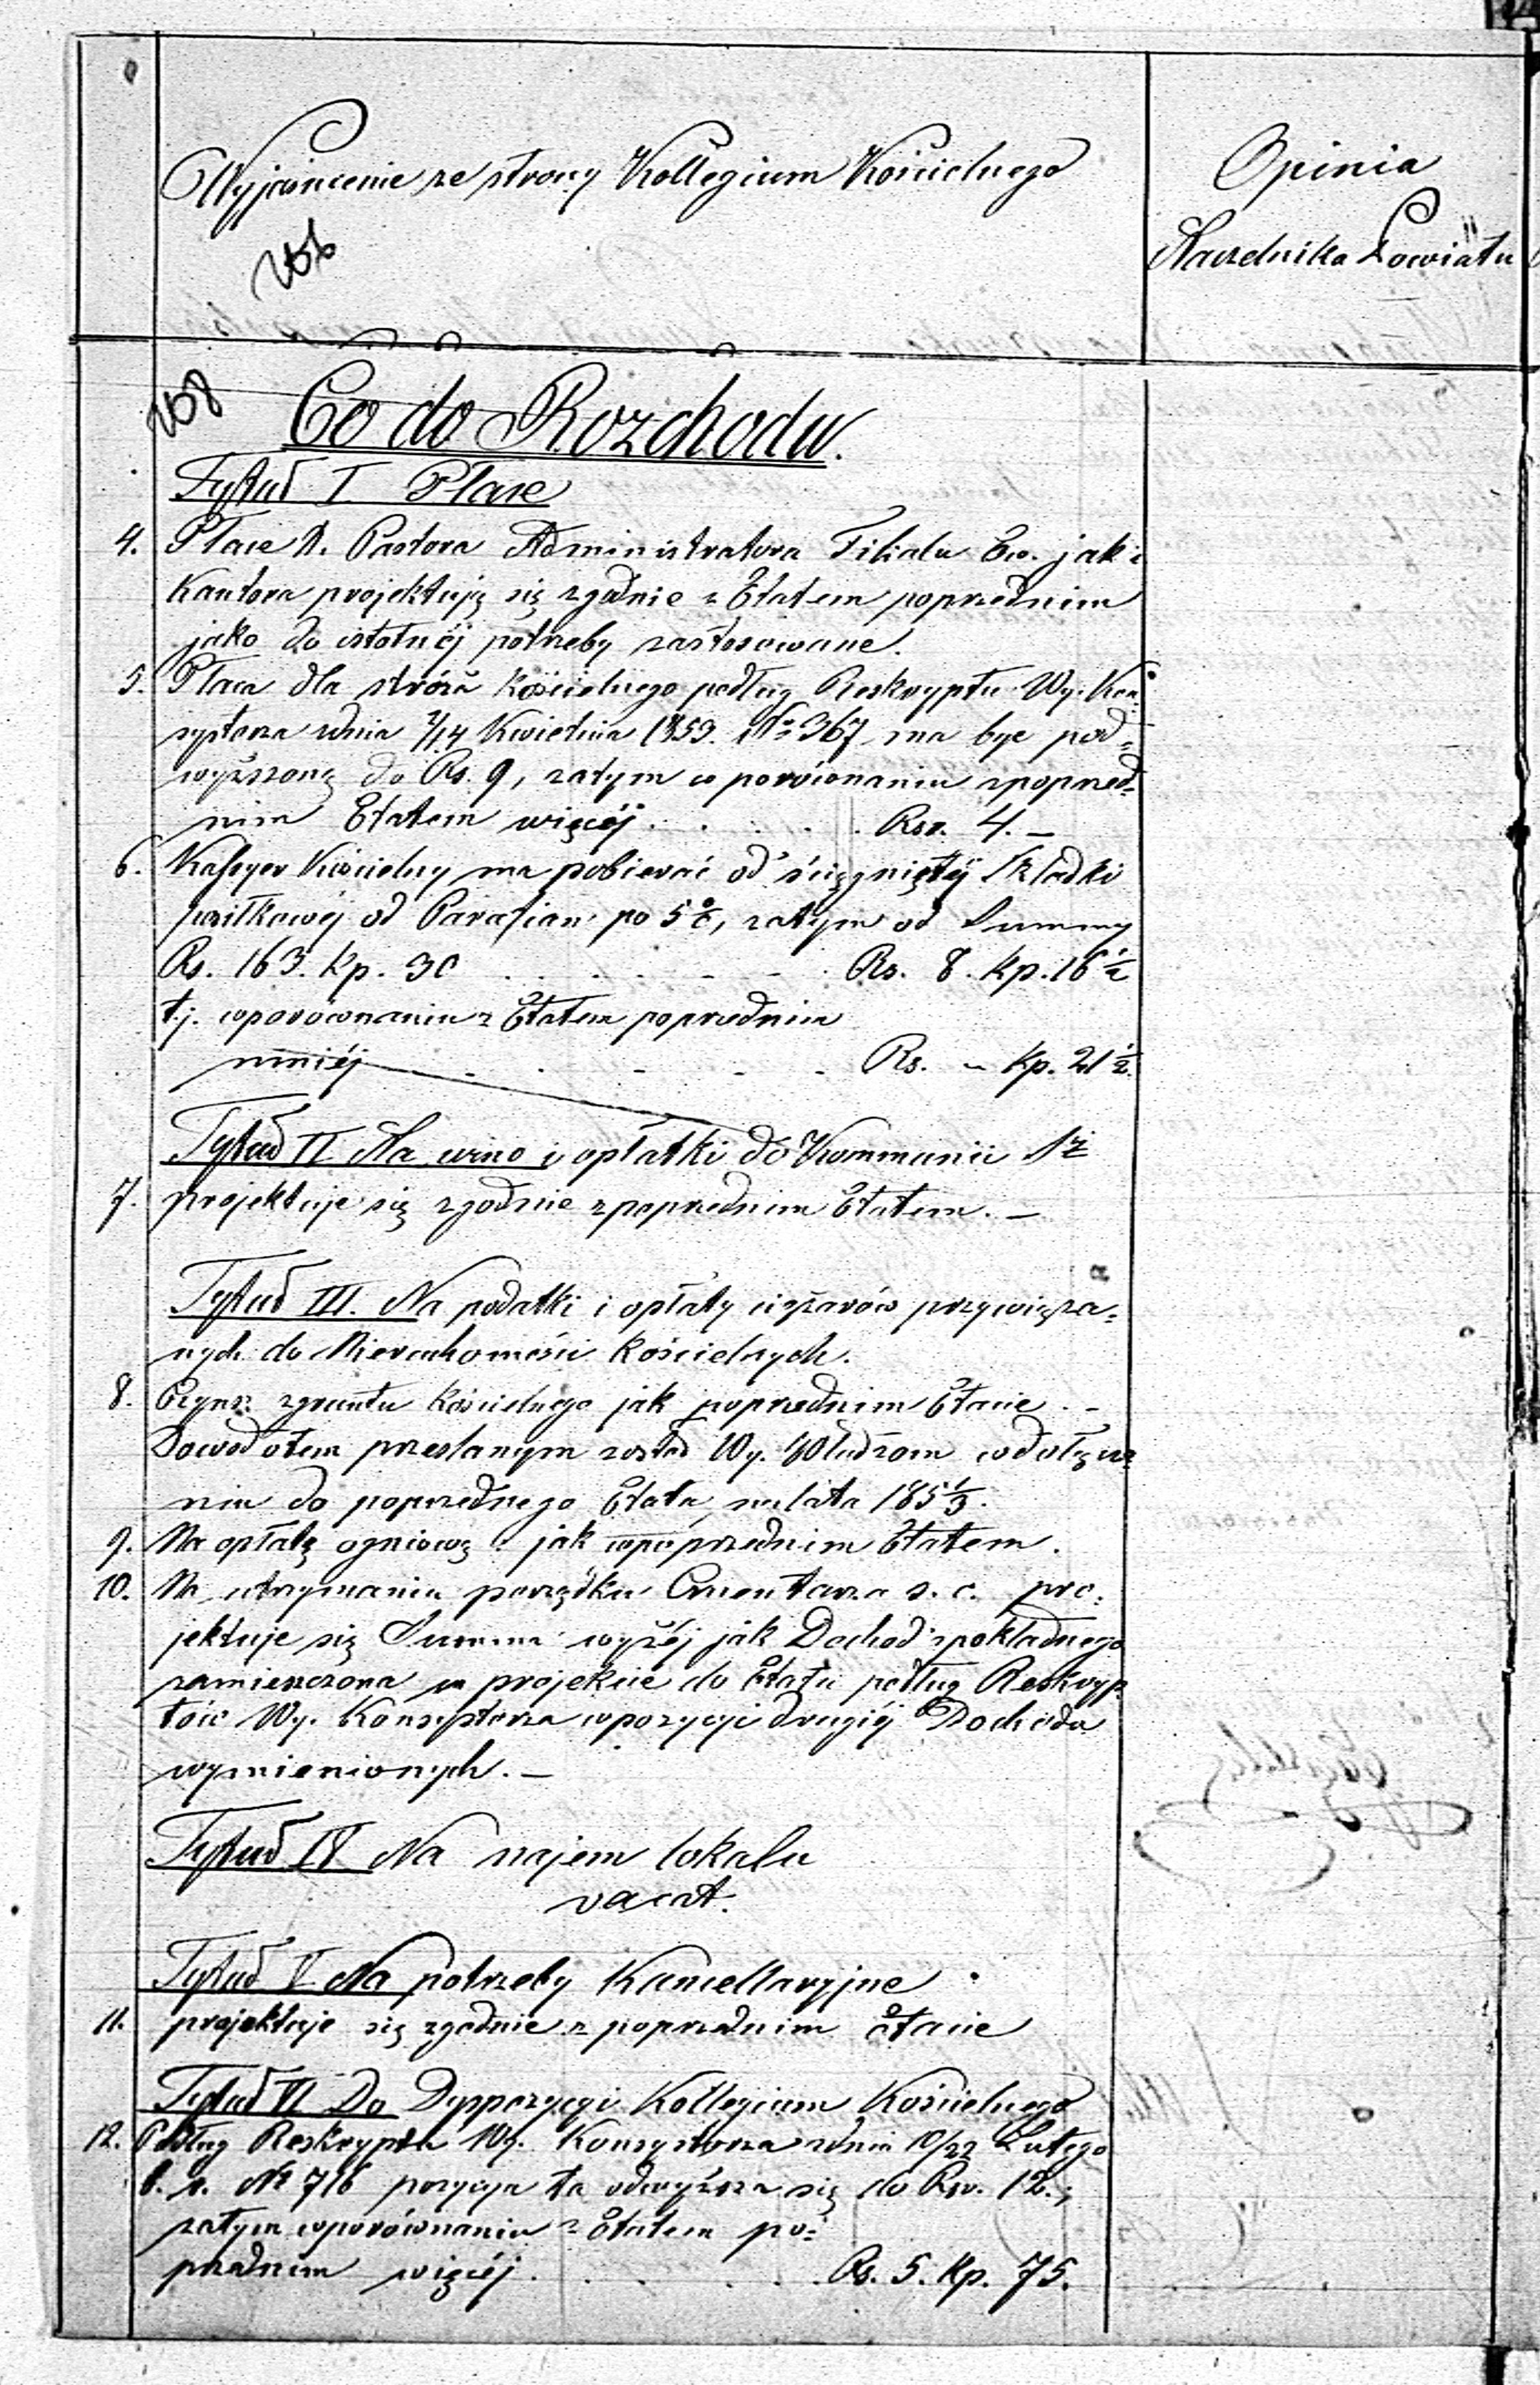 Wyjaśnienie ze strony Kollegium Kościelnego
Opinia
Naczelnika Powiatu
Co do Rozchodu.
Tytuł I. Płace
4. Płace X. Pastora Administratora Filiału Ew. jak i
Kantora projektują się zgodnie z Etatem poprzednim
jako do istotnéj potrzeby zastosowane.
5. Płaca dla stróża kościelnego podług Reskryptu Wy. Kon=
systorza zdnia 2/14 Kwietnia 1853. No 367 ma byc pod=
wyższoną do Rs. 9, zatym w porównaniu zpoprzed=
nim Etatem więcéj . . . . . Rsr. 4. –
6. Kassyer Kościelny ma pobierać od ściągniętéj Składki
posiłkowéj od Parafian po 5%, zatym od Summy
Rs. 163. Kp. 30 . . . . . Rs. 8. Kp. 16 1/2
t.j. wporównaniu z Etatem poprzednim
mniéj . . . . . Rs. – Kp. 21 1/2.
Tytuł II Na wino i opłatki do Kommunii
7. projektuje się zgodnie zpoprzednim Etatem. –
Tytuł III. Na podatki i opłaty ciężarów przywiąza=
nych do Nieruchomości Kościelnych.
8. Czynsz zgruntu Kościelnego jak poprzednim Etacie . –
Dowód otem przesłanym został Wy. Władzom wdołącze
niu do poprzednego Etatu na lata 185 1/3.
9. Na opłatę ogniową jak wpoprzednim Etatem.
10. Na utrzymaniu porządku Cmentarza s. c. pro=
jektuje się Summa wyżéj jak Dochod zpokładnego
zamieszczona w projekcie do Etatu podług Reskryp
tów Wy. Konsystorza wpozycyi drugiéj Dochodu
wymienionych. –
Tytuł IV Na najem lokalu
vacat.
Tytuł V Na potrzeby Kancellaryjne
11. projektuje się zgodnie z poprzednim Etacie
Tytuł VI Do Dyspozycyi Kollegium Kościelnego
12. Podług Reskryptu Wy. Konsystorza zdnia 10/22 Lutego
b. r. No 716 pozycya ta odwyższa się do Rsr. 12.;
zatym wporównaniu z Etatem po=
przednim więcéj . . . . . Rs. 5. Kp. 75.